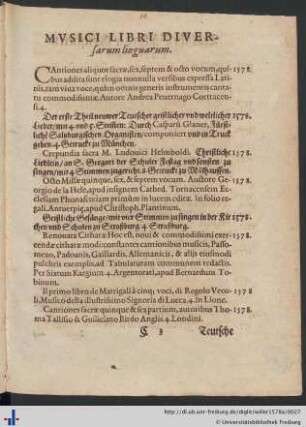 MVSICI LIBRI DIVER-
sarum linguarum.
CAntiones aliquot sacræ, sex, septem & octo vocum, qui- 1578.
bus addita sunt elogia nonnulla versibus expressa Lati-
nis, tam viva voce, quàm omnis generis instrumentis canta-
tu commodissimæ. Autore Andrea Peuernago Cortracen-
si. 4.
Der erste Theil neuwer Teutscher geistlicher vnd weltlicher 1578.
Lieder, mit 4. vnd 5. Stimmen: Durch Casparũ Glaner, Fürst-
liche Saltzburgischen Organisten, componiert vnd in Truck
gehen. 4. Getruckt zu München.
Crepundia sacra M. Ludouici Helmboldi. Christliche 1578
Liedlein, an S. Gregorii der Schuler Festag vnd sonsten zu
singen, mit 4 Stimmen zugericht. 8. Getruckt zu Mülhaussen.
Octo Missæ quinque, sex, & septem vocum. Authore Ge- 1578.
orgio de la Hele, apud insignem Cathed. Tornacensem Ec-
clesiam Phonascorum primùm in lucem editæ. In folio re-
gali. Antuerpiæ, apud Christoph. Plantinum.
Geistliche Gesänge, mit vier Stimmen zu singen in der Kir- 1578.
chen vnd Schulen zu Straßburg. 4. Straßburg.
Renouata Cithara: Hoc est, noui & commodissimi exer- 1578
cendæ citharæ modi: constantes cantionibus musicis, Passo-
mezo, Padoanis, Gaillardis, Allemanicis, & alijs eiusmodi
pulchris exemplis, ad Tabulaturam communem redactis.
Per Sixtum Kargium. 4. Argentorati, apud Bernardum To-
binum.
Il primo libro de Matrigali à cinq; voci, di Regolo Veco- 1578
li, Musico della illustrissimo Signoria di Lucca. 4. In Lione.
Cantiones sacræ quinque & sex partium, autoribus Tho-
ma Tallisio & Guilielmo Birdo Anglis. 4. Londini.
Teutsche
http://dl.ub.uni-freiburg.de/diglit/willer1578a/0027
© Universitätsbibliothek Freiburg